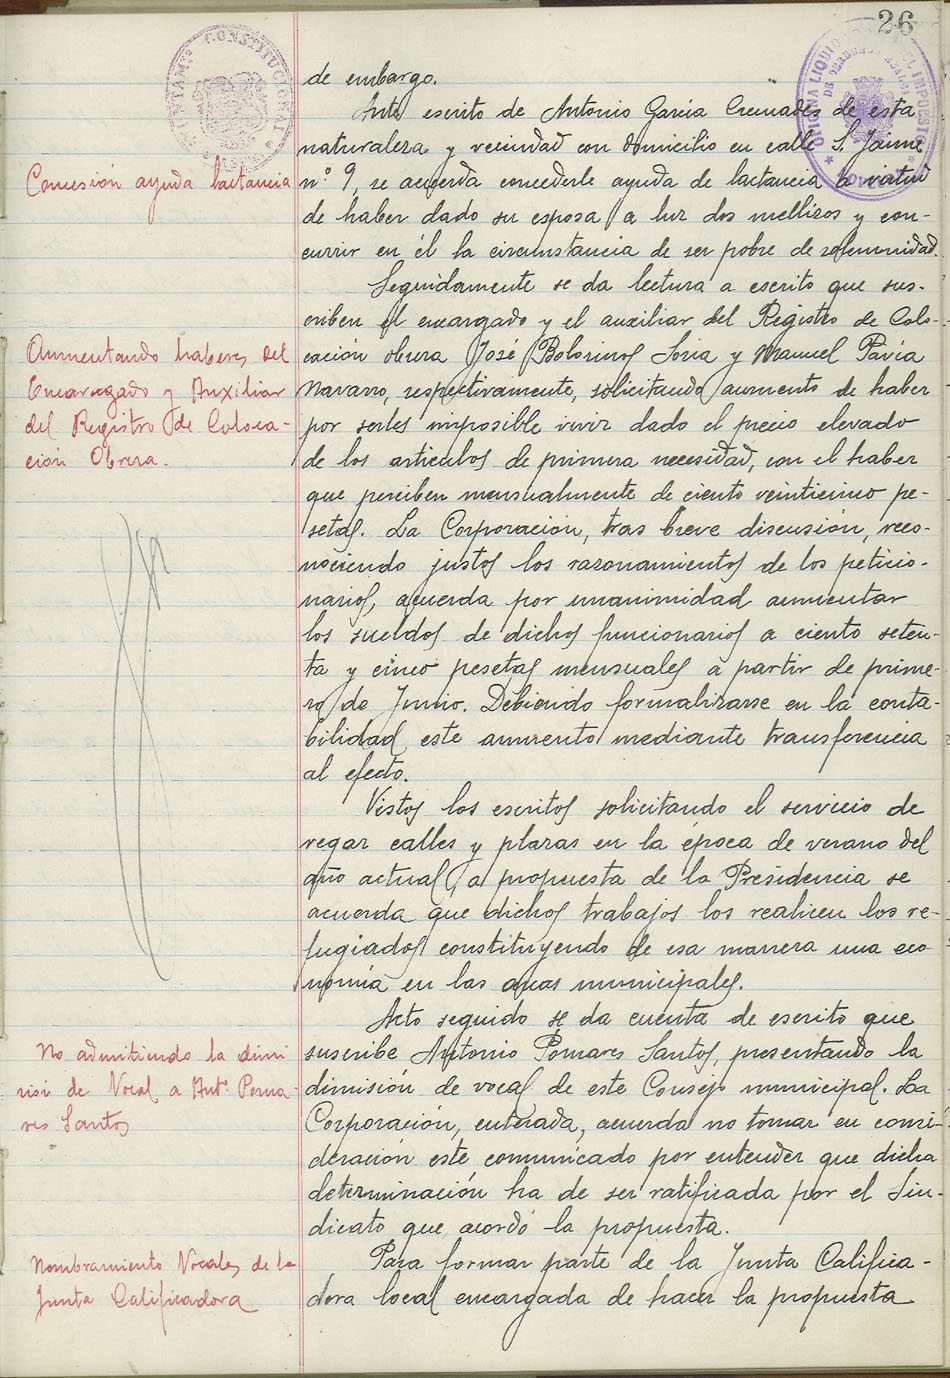 26
AYUNTAM.º CONSTITUCIONAL
OFICINA LIQUIDADORA DEL IMPUESTO
DE DERECHOS REALES
de embargo.
Ante escrito de Antonio García Cremades de esta
naturaleza y vecindad con domicilio en calle S. Jaime
Concesión ayuda lactancia
nº 9, se acuerda concederle ayuda de lactancia a virtud
de haber dado su esposa a luz dos mellizos y con-
currir en él la circunstancia de ser pobre de solemnidad.
Seguidamente se da lectura a escrito que sus-
criben el encargado y el auxiliar del Registro de Colo-
Aumentando haberes del
Encargado y Auxiliar
del Registro de Coloca-
ción Obrera.
cación obrera José Bolorinos Soria y Manuel Pavía
Navarro, respectivamente, solicitando aumento de haber
por serles imposible vivir dado el precio elevado
de los artículos de primera necesidad, con el haber
que perciben mensualmente de ciento veinticinco pe-
setas. La Corporación, tras breve discusión, reco-
nociendo justos los razonamientos de los peticio-
narios, acuerda por unanimidad aumentar
los sueldos de dichos funcionarios a ciento seten-
ta y cinco pesetas mensuales a partir de prime-
ro de Junio. Debiendo formalizarse en la conta-
bilidad este aumento mediante transferencia
al efecto.
Vistos los escritos solicitando el servicio de
regar calles y plazas en la época de verano del
año actual, a propuesta de la Presidencia se
acuerda que dichos trabajos los realicen los re-
fugiados constituyendo de esa manera una eco-
nomía en las arcas municipales.
Acto seguido se da cuenta de escrito que
No admitiendo la dimi
sión de Vocal a Antº Poma-
res Santos
suscribe Antonio Pomares Santos, presentando la
dimisión de vocal de este Consejo municipal. La
Corporación, enterada, acuerda no tomar en consi-
deración este comunicado por entender que dicha
determinación ha de ser ratificada por el Sin-
dicato que acordó la propuesta.
Nombramiento Vocales de la
Junta Calificadora
Para formar parte de la Junta Califica-
dora local encargada de hacer la propuesta